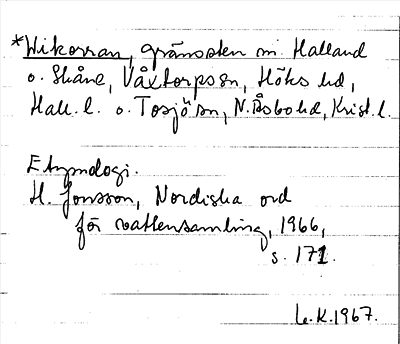 *Wikorran, gränssten m. Halland
o. Skåne, Våxtorps sn, Höks hd,
Hall. l. o. Tosjö sn, N. Åsbo hd, Krist. l.
Etymologi.
H. Jonsson, Nordiska ord
för vattensamling, 1966,
s. 171.
L.K. 1967.